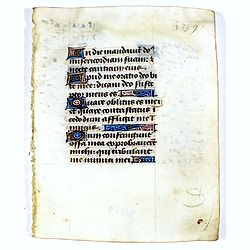 In die mandavit do
misericordiam suam: &
nocte canticum eius
Apud me oratio deo vi
te mee: dicam deo suscep
tor meus es
Quare oblitus es mei
et quare contristatus i
cedo dum affligit me i
micus
Dum confringuntur
ossa mea exprobraverunt
michi: qui tribulant
me inimici mei